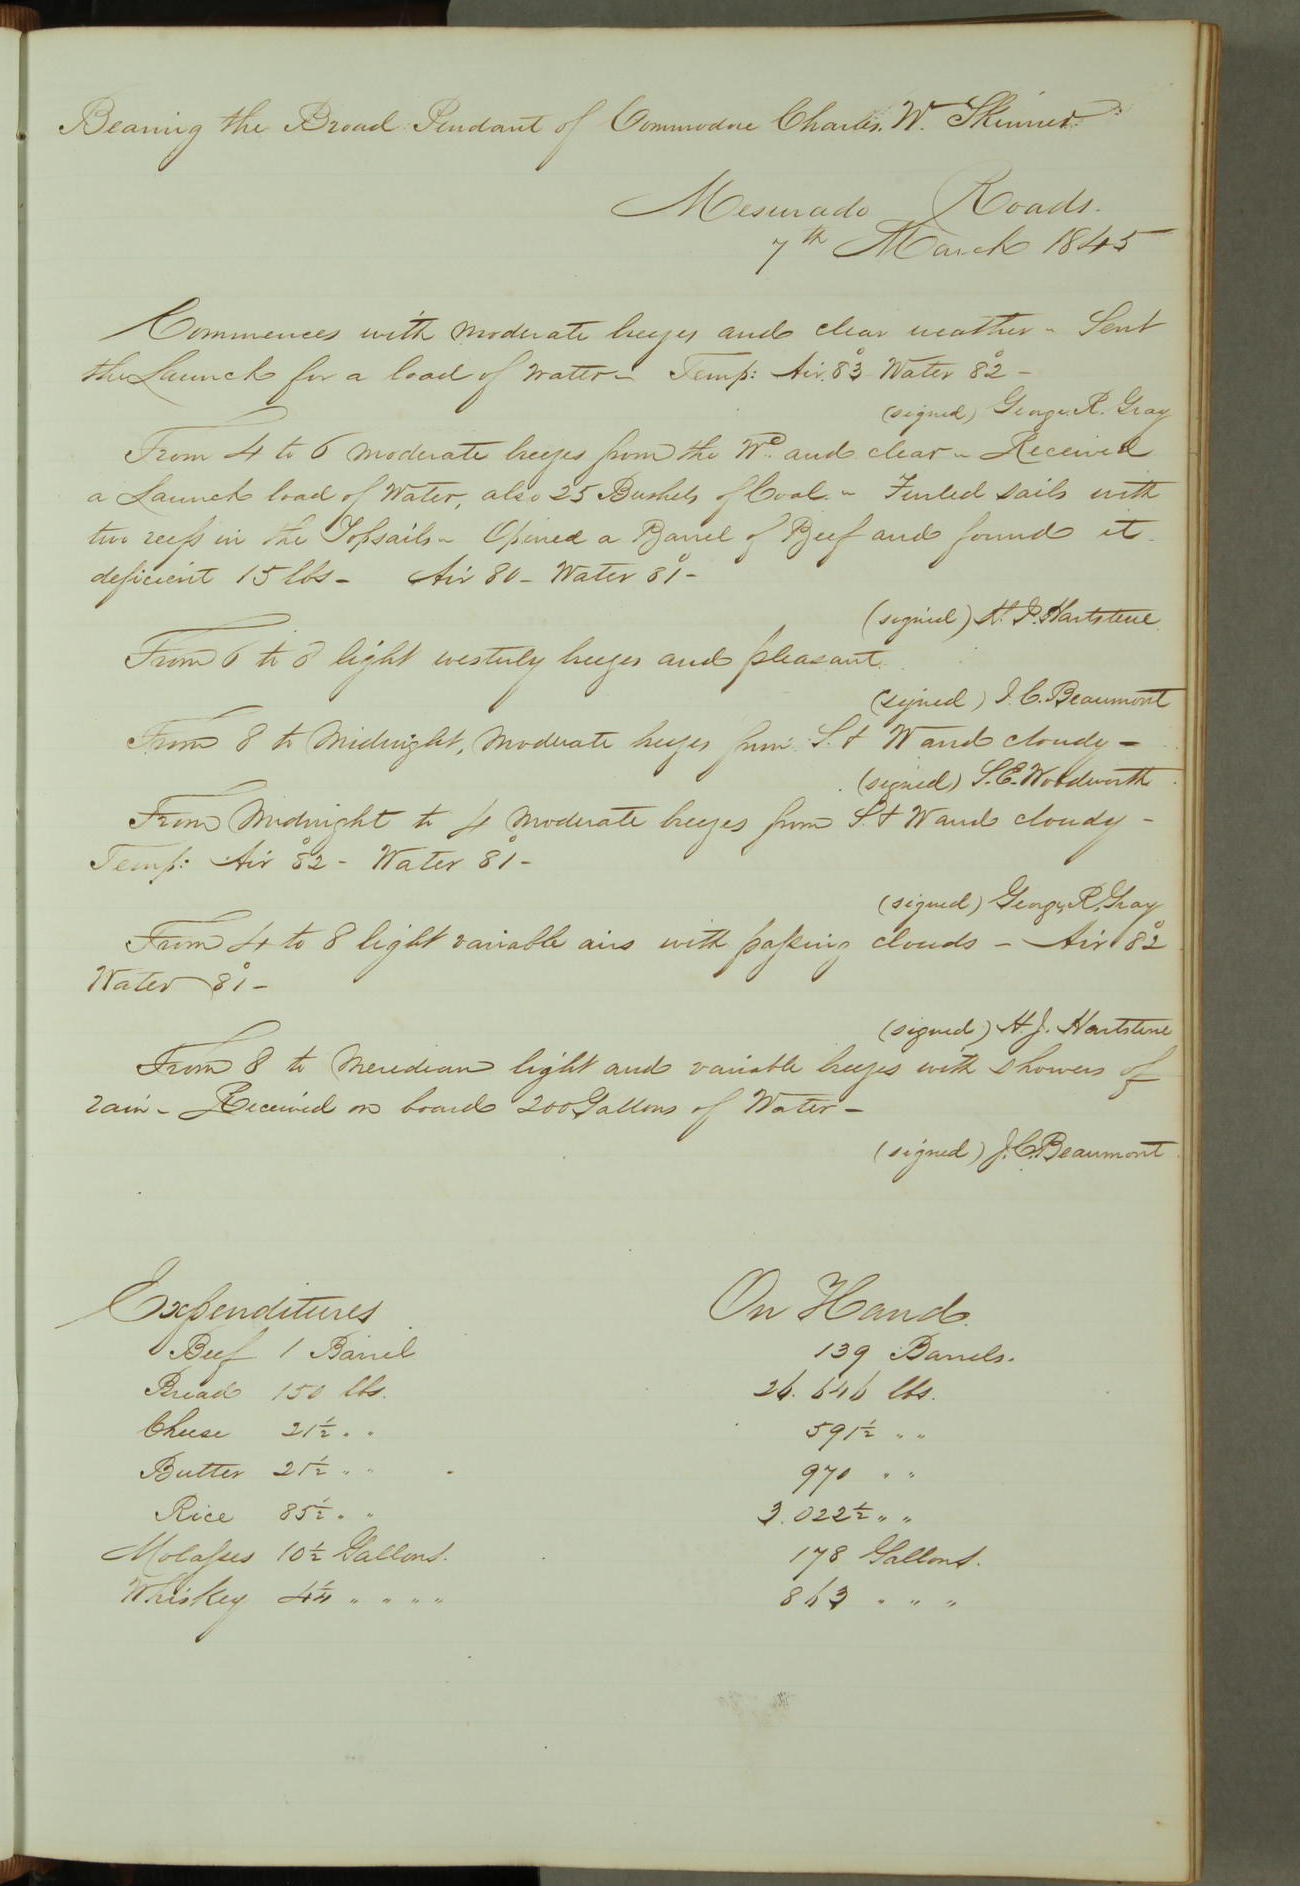 Bearing the Broad Pendant of Commodore Charles. W. Skinner
Mesurado Roads.
7th March 1845
Commences with moderate breezes and clear weather - Sent
the Launch for a load of Water - Temp: Air 83° Water 82° -
(signed) George R. Gray
From 4 to 6 moderate breezes from the Wd. and clear - Received
a Launch load of Water, also 25 Bushels of Coal. - Furled sails with
two reefs in the Topsails - Opened a Barrel of Beef and found it
deficient 15 lbs - Air 80 - Water 81° -
(signed) H. J. Hartstene
From 6 to 8 light westerly breezes and pleasant.
(signed) J. C. Beaumont
From 8 to Midnight, Moderate breezes from S. & W and cloudy -
(signed) S. E. Woodworth
From Midnight to 4 Moderate breezes from S. & W and cloudy -
Temp: Air 82° - Water 81° -
(signed) George R. Gray
From 4 to 8 light variable airs with passing clouds - Air 82°
Water 81° -
(signed) H. J. Hartstene
From 8 to Meridian light and variable breezes with showers of
rain - Received on board 200 Gallons of Water -
(signed) J. C. Beaumont
Expenditures On Hand.
Beef 1 Barrel 139 Barrels.
Bread 150 lbs. 26.646 lbs.
Cheese 21½ " " 591½ " "
Butter 21½ " " 970 " "
Rice 85½ " " 3.022½ " "
Molasses 10½ Gallons. 178 Gallons.
Whiskey 4¼ " " " " 863 " " "